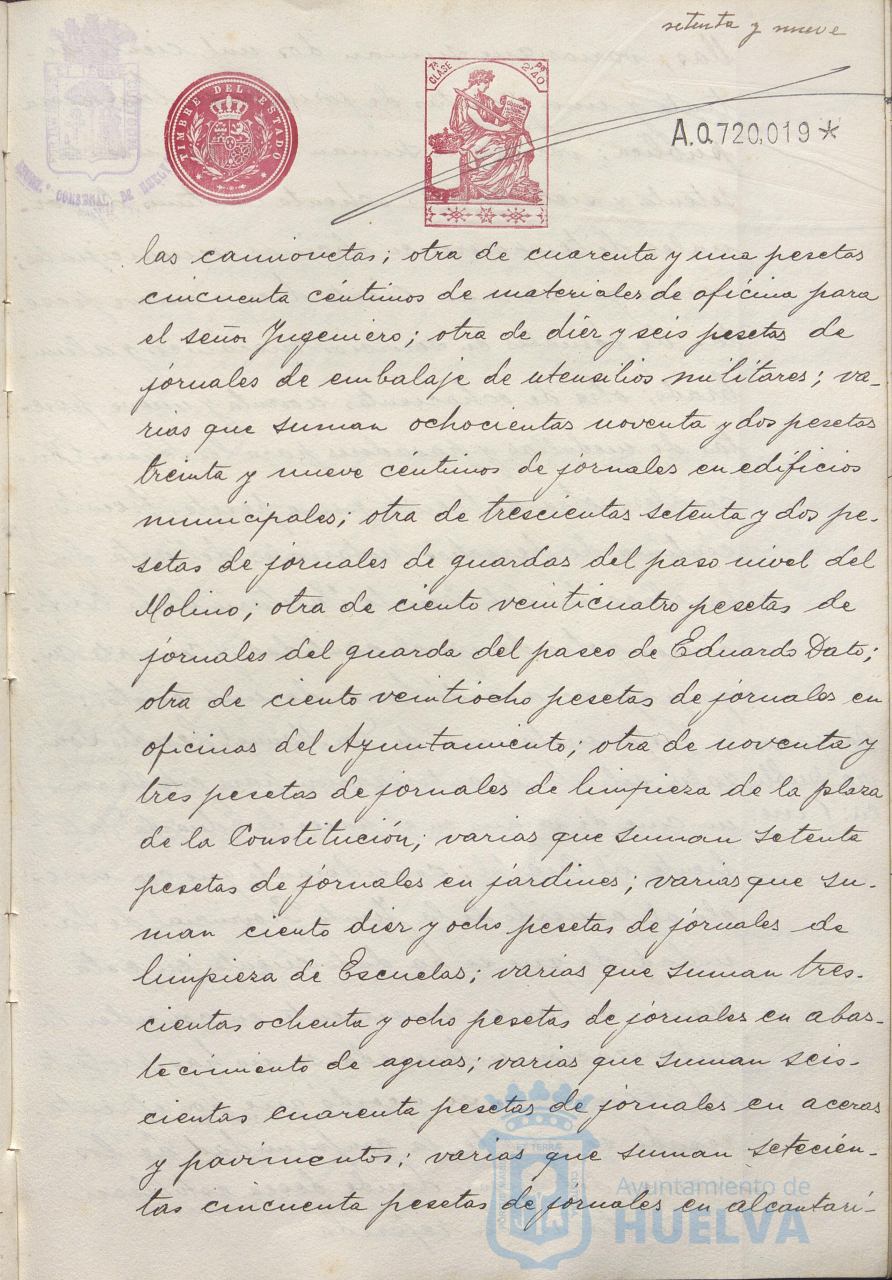 setenta y nueve
TIMBRE DEL ESTADO
7ª CLASE
2'40 pts
A.0,720,019*
las camionetas; otra de cuarenta y una pesetas
cincuenta céntimos de materiales de oficina para
el señor Ingeniero; otra de diez y seis pesetas de
jornales de embalaje de utensilios militares; va-
rias que suman ochocientas noventa y dos pesetas
treinta y nueve céntimos de jornales en edificios
municipales; otra de trescientas setenta y dos pe-
setas de jornales de guardas del paso nivel del
Molino; otra de ciento veinticuatro pesetas de
jornales del guarda del paseo de Eduardo Dato;
otra de ciento veintiocho pesetas de jornales en
oficinas del Ayuntamiento; otra de noventa y
tres pesetas de jornales de limpieza de la plaza
de la Constitución; varias que suman setenta
pesetas de jornales en jardines; varias que su-
man ciento diez y ocho pesetas de jornales de
limpieza de Escuelas; varias que suman tres-
cientas ochenta y ocho pesetas de jornales en abas-
tecimiento de aguas; varias que suman seis-
cientas cuarenta pesetas de jornales en aceras
y pavimentos; varias que suman setecien-
tas cincuenta pesetas de jornales en alcantari-
Ayuntamiento de
HUELVA